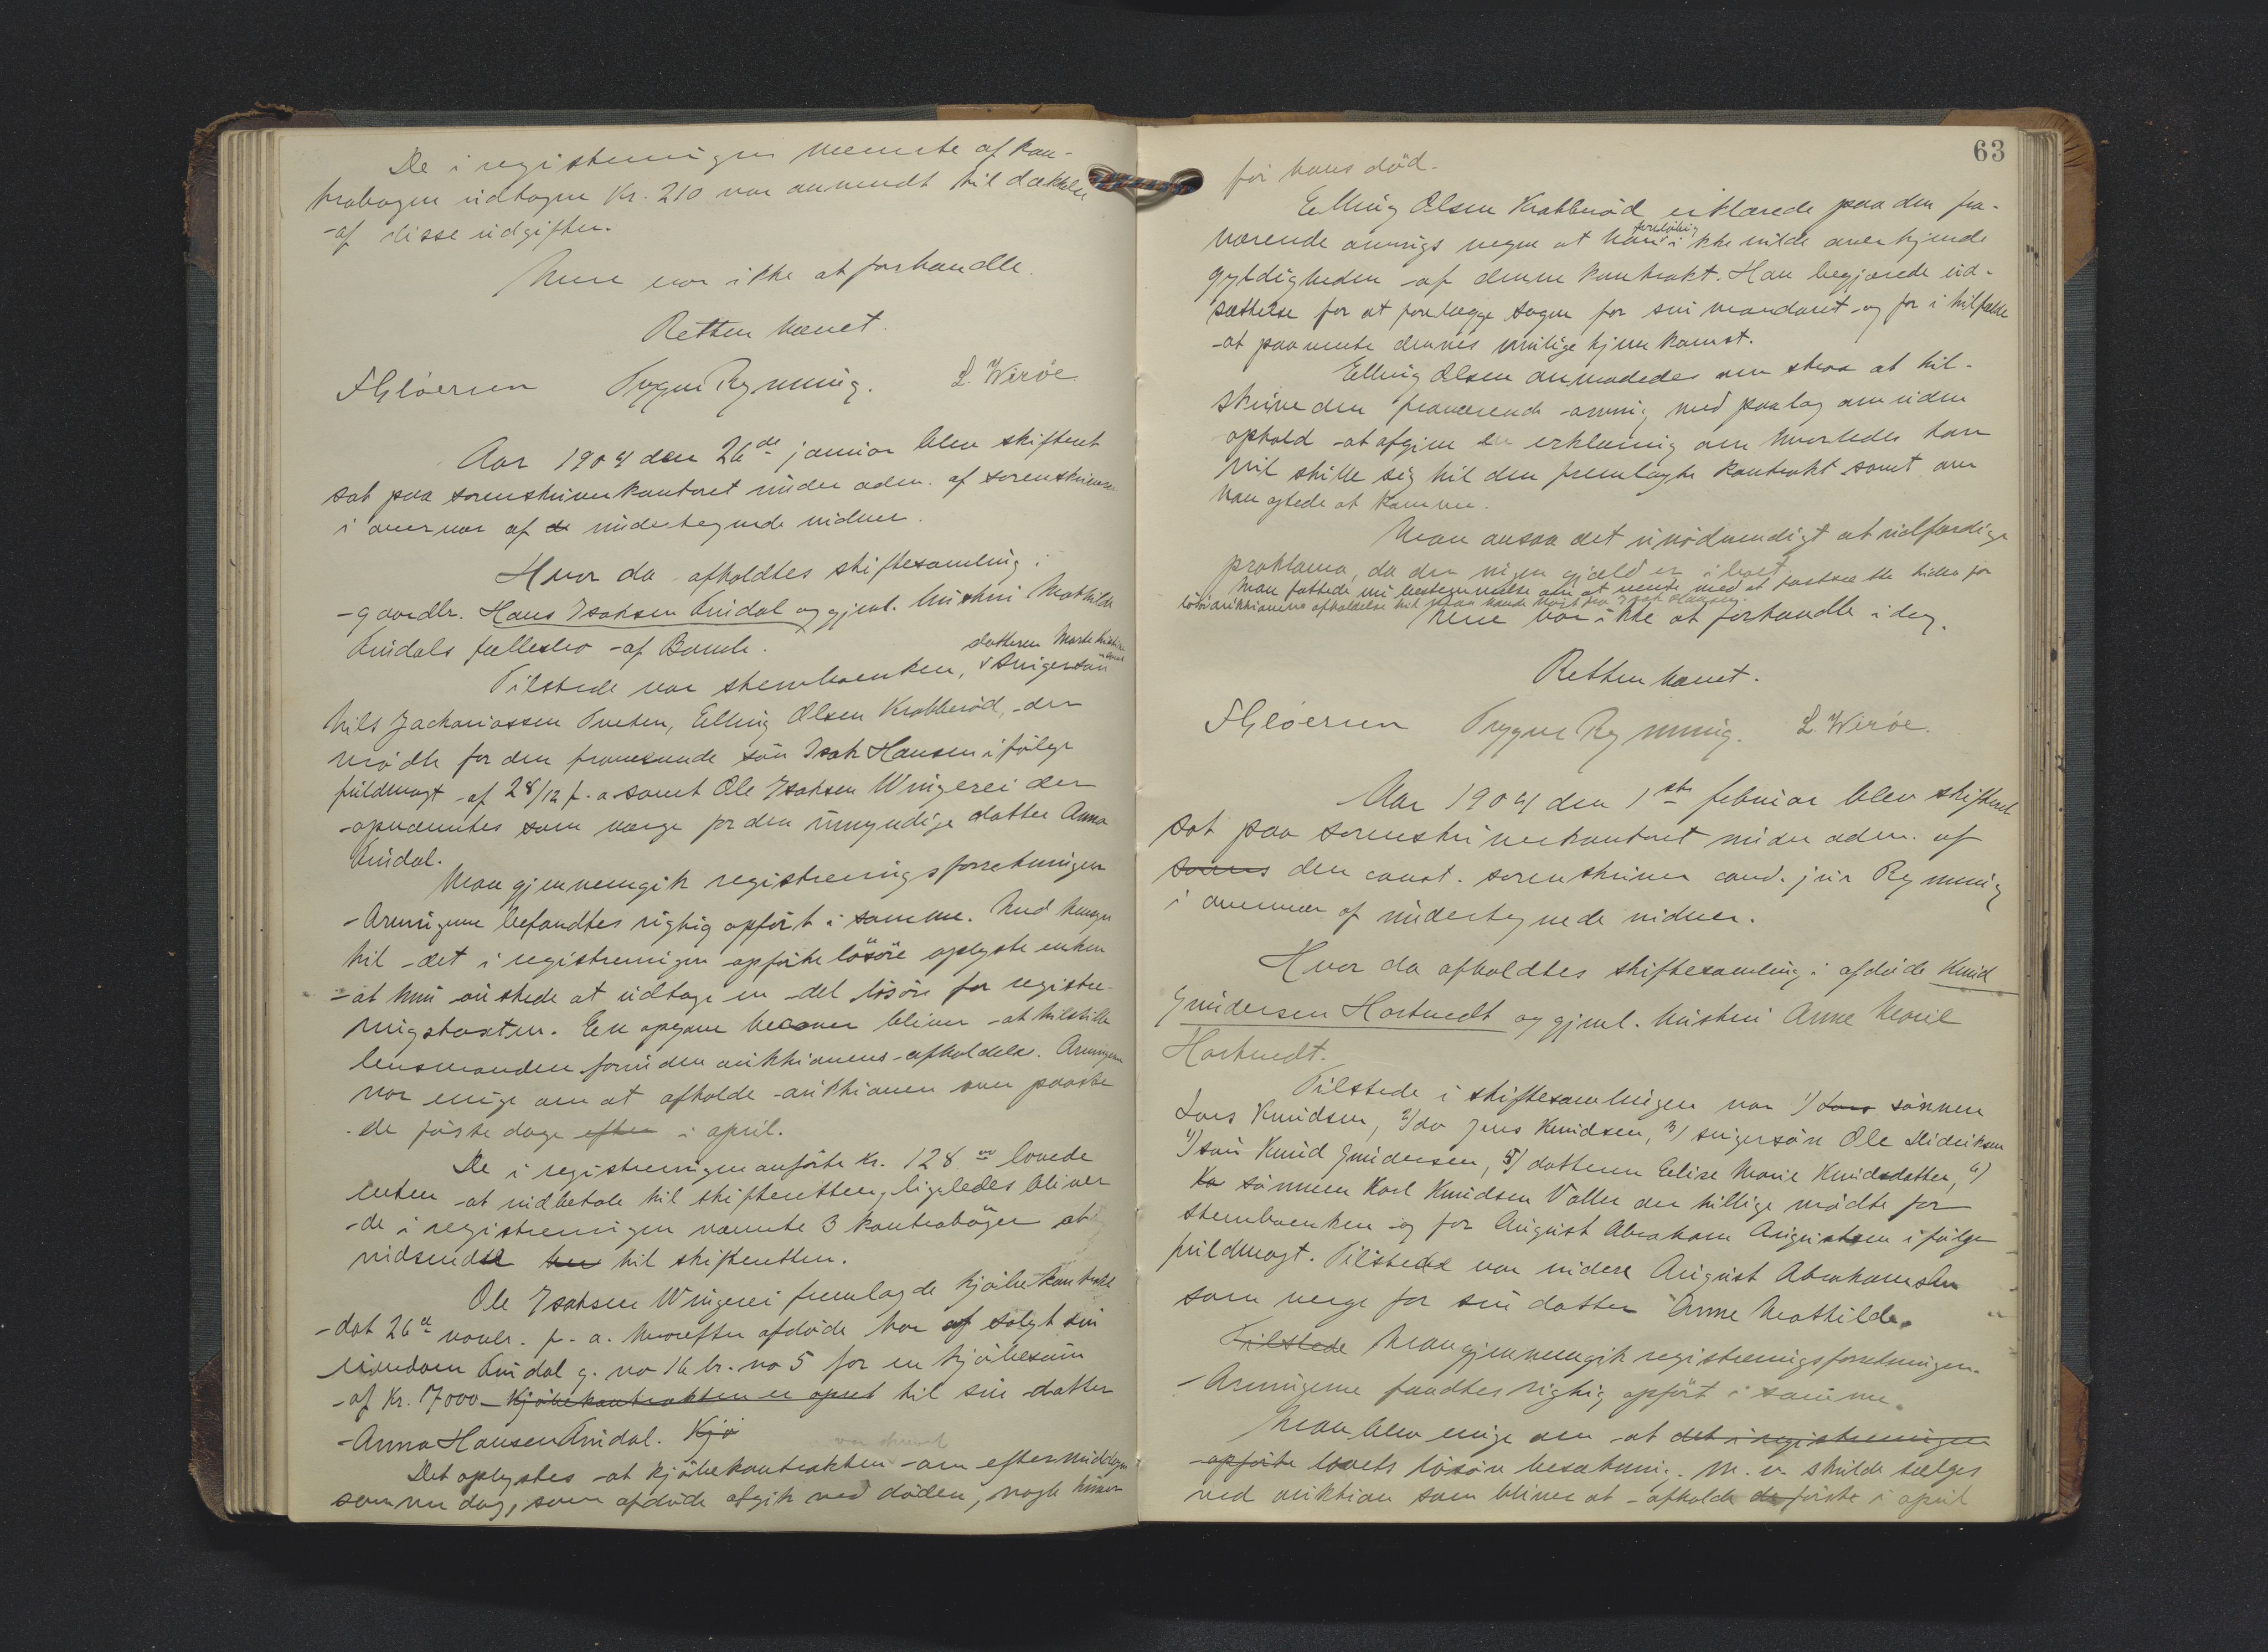 De i registreringen nævnte af kon-
trabogen udtagne Kr. 210 var anvendt til dækkelse
af disse udgifter.
Mere var ikke at forhandle.
Retten hævet.
FGlöersen Trygve Rynning. L. Wirøe
Aar 1904 den 26de januar blev skifteret
sat paa sorenskriverkontoret under adm. af sorenskriveren
i overvær af de undertegnede vidner.
Hvor da afholdtes skiftesamling i
gaardbr. Hans Isaksen Tindal og gjenl. hustru Mathilde
Tindals fællesbo af Bamle.
datteren Marte
Tilstede var stervboenken, svigersøn
Nils Zachariassen Tveten, Elling Olsen Krabberöd, der
mödte for den fraværende sön Isak Hansen ifölge
fuldmagt af 28/12 f. a. samt Ole Isaksen Wingerei der
opnævntes som værge for den umyndige datter Anna
Tindal.
Man gjennemgik registreringsforretningen
Arvingerne befandtes rigtig opfört i samme. Med hensyn
til det i registreringen opförte lösöre oplyste enken
at hun önskede at udtage en del lösöre for registre-
ringstaxten. En opgave herover bliver at tilstille
lensmanden forinden auktionens afholdelse. Arvingerne
var enige om at afholde auktionen over paaske
de förste dage efter i april.
De i registreringen anförte kr. 128 00 lovede
enken at indbetale til skifteretten, ligeledes bliver
de i registreringen nævnte 3 kontraböger at
indsende her til skifteretten.
Ole Isaksen Wingerei fremlagde kjöbekontrakt
dat 26de novbr. f. a. hvorefter afdöde har af solgt sin
eiendom Tindal g. no 16 br. no 5 for en kjöbesum
af Kr. 7000 Kjöbekontrakten er opret til sin datter
Anna Hansen Tindal. Kjö
var skrevet
Det oplystes at kjöbekontrakten om eftermiddagen
samme dag, som afdöde afgik ved döden, nogle timer
63
för hans död.
Elling Olsen Krabberöd erklærede paa den fra-
foreløbig
værende arvings vegne at han ikke vilde anerkjende
gyldigheden af denne kontrakt. Han begjærede ud-
sættelse for at forelægge sagen for sin mandant og for i tilfælde
at paavente dennes mulige hjemkomst.
Elling Olsen anmodedes om strax at til-
skrive den fraværende arving med paalæg om uden
ophold at afgive en erklæring om hvorledes han
vil stille sig til den fremlagte kontrakt samt om
han agtede at komme.
Man ansaa det unödvendigt at udfærdige
proklama, da der ingen gjæld er i boet.
Man fattede nu bestemmelse om at vente med at fastsætte tiden for
lösöreauktionens afholdelse til man havde hört fra Isak Hansen.
Mere var ikke at forhandle i dag.
Retten hævet.
FGlöersen Trygve Rynning. L. Wirøe.
Aar 1904 den 1ste februar blev skifteret
sat paa sorenskriverkontoret under adm. af
sorens den const. sorenskriver cand. jur Rynning
i overvær af undertegnede vidner.
Hvor da afholdtes skiftesamling i afdöde Knud
Gundersen Hortvedt og gjenl. hustru Anne Marie
Hortvedt.
Tilstede i skiftesamlingen var 1/ Lars sönnen
Lars Knudsen, 2/ do Jens Knudsen, 3/ svigersön Ole Didriksen
4/ sön Knud Gundersen, 5/ datteren Elise Marie Knudsdatter, 6/
Ka sönnen Karl Knudsen Valler der tillige mödte for
stervboenken og for August Abraham Augustsen ifölge
fuldmagt. Tilstede var videre August Abrahamsen
som verge for sin datter Anne Mathilde.
Tilstede Man gjennemgik registreringsforretningen.
Arvingerne fandtes rigtig opfört i samme.
Man blev enige om at det i registreringen
opförte boets lösöre besætning m. v. skulde sælges
ved auktion som bliver at afholde de förste i april